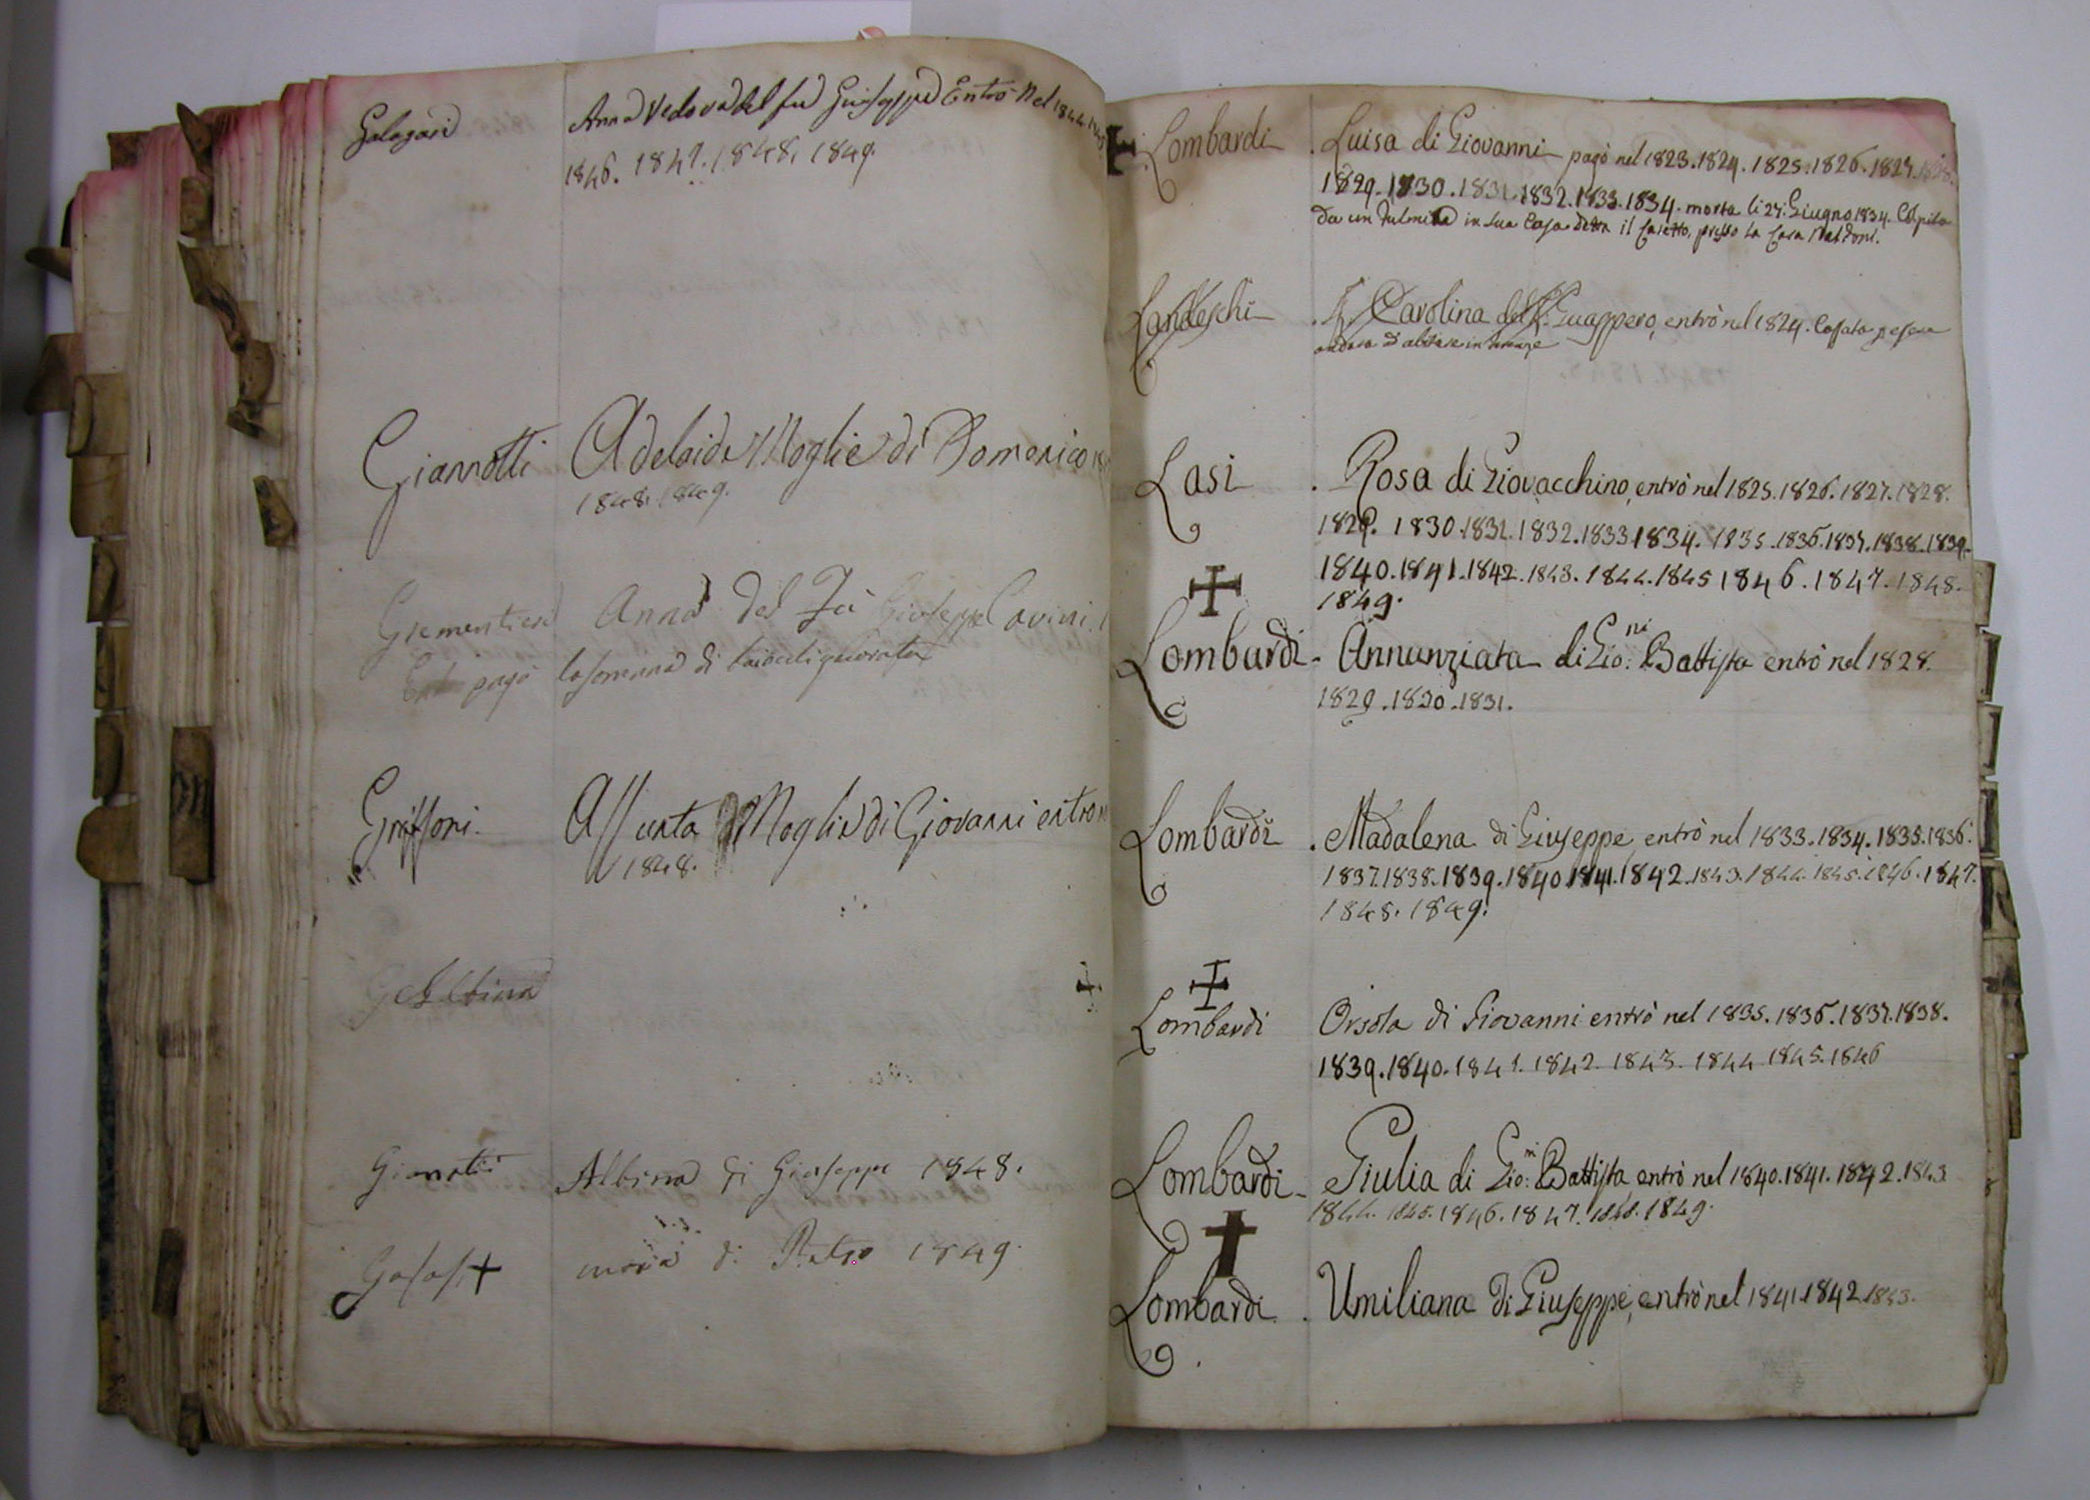 Galagari Anna Vedova del fu Giuseppe Entrò Nel 1844.
1846. 1847. 1848. 1849.
Giannotti Adelaide Moglie di Domenico
1848. 1849.
Anna del Fu Giuseppe
pagò la somma di
Griffoni. Assunta Moglie di Giovanni entro
1848.
Albina
Albina di Giuseppe 1848.
maria di Pietro 1849.
Lombardi. Luisa di Giovanni pagò nel 1823. 1824. 1825. 1826. 1827. 1828.
1829. 1830. 1831. 1832. 1833. 1834. morta li 27. Giugno 1834. Colpita
da un fulmine in sua Casa detta il presso la Casa
Landeschi. Carolina del Guappero, entrò nel 1824.
di abitare in
Lasi. Rosa di Giovacchino, entrò nel 1825. 1826. 1827. 1828.
1829. 1830. 1831. 1832. 1833 1834. 1835. 1836. 1837. 1838. 1839.
1840. 1841. 1842. 1843. 1844. 1845 1846. 1847. 1848.
1849.
Lombardi. Annunziata di Gio:ni Battista entrò nel 1828.
1829. 1830. 1831.
Lombardi. Madalena di Giuseppe entrò nel 1833. 1834. 1835. 1836.
1837. 1838. 1839. 1840. 1841. 1842. 1843. 1844. 1845. 1846. 1847.
1848. 1849.
Lombardi Orsola di Giovanni entrò nel 1835. 1836. 1837. 1838.
1839. 1840. 1841. 1842. 1843. 1844 1845. 1846
Lombardi. Giulia di Gio:ni Battista, entrò nel 1840. 1841. 1842. 1843
1844. 1845. 1846. 1847. 1848. 1849.
Lombardi. Umiliana di Giuseppe, entrò nel 1841. 1842. 1843.